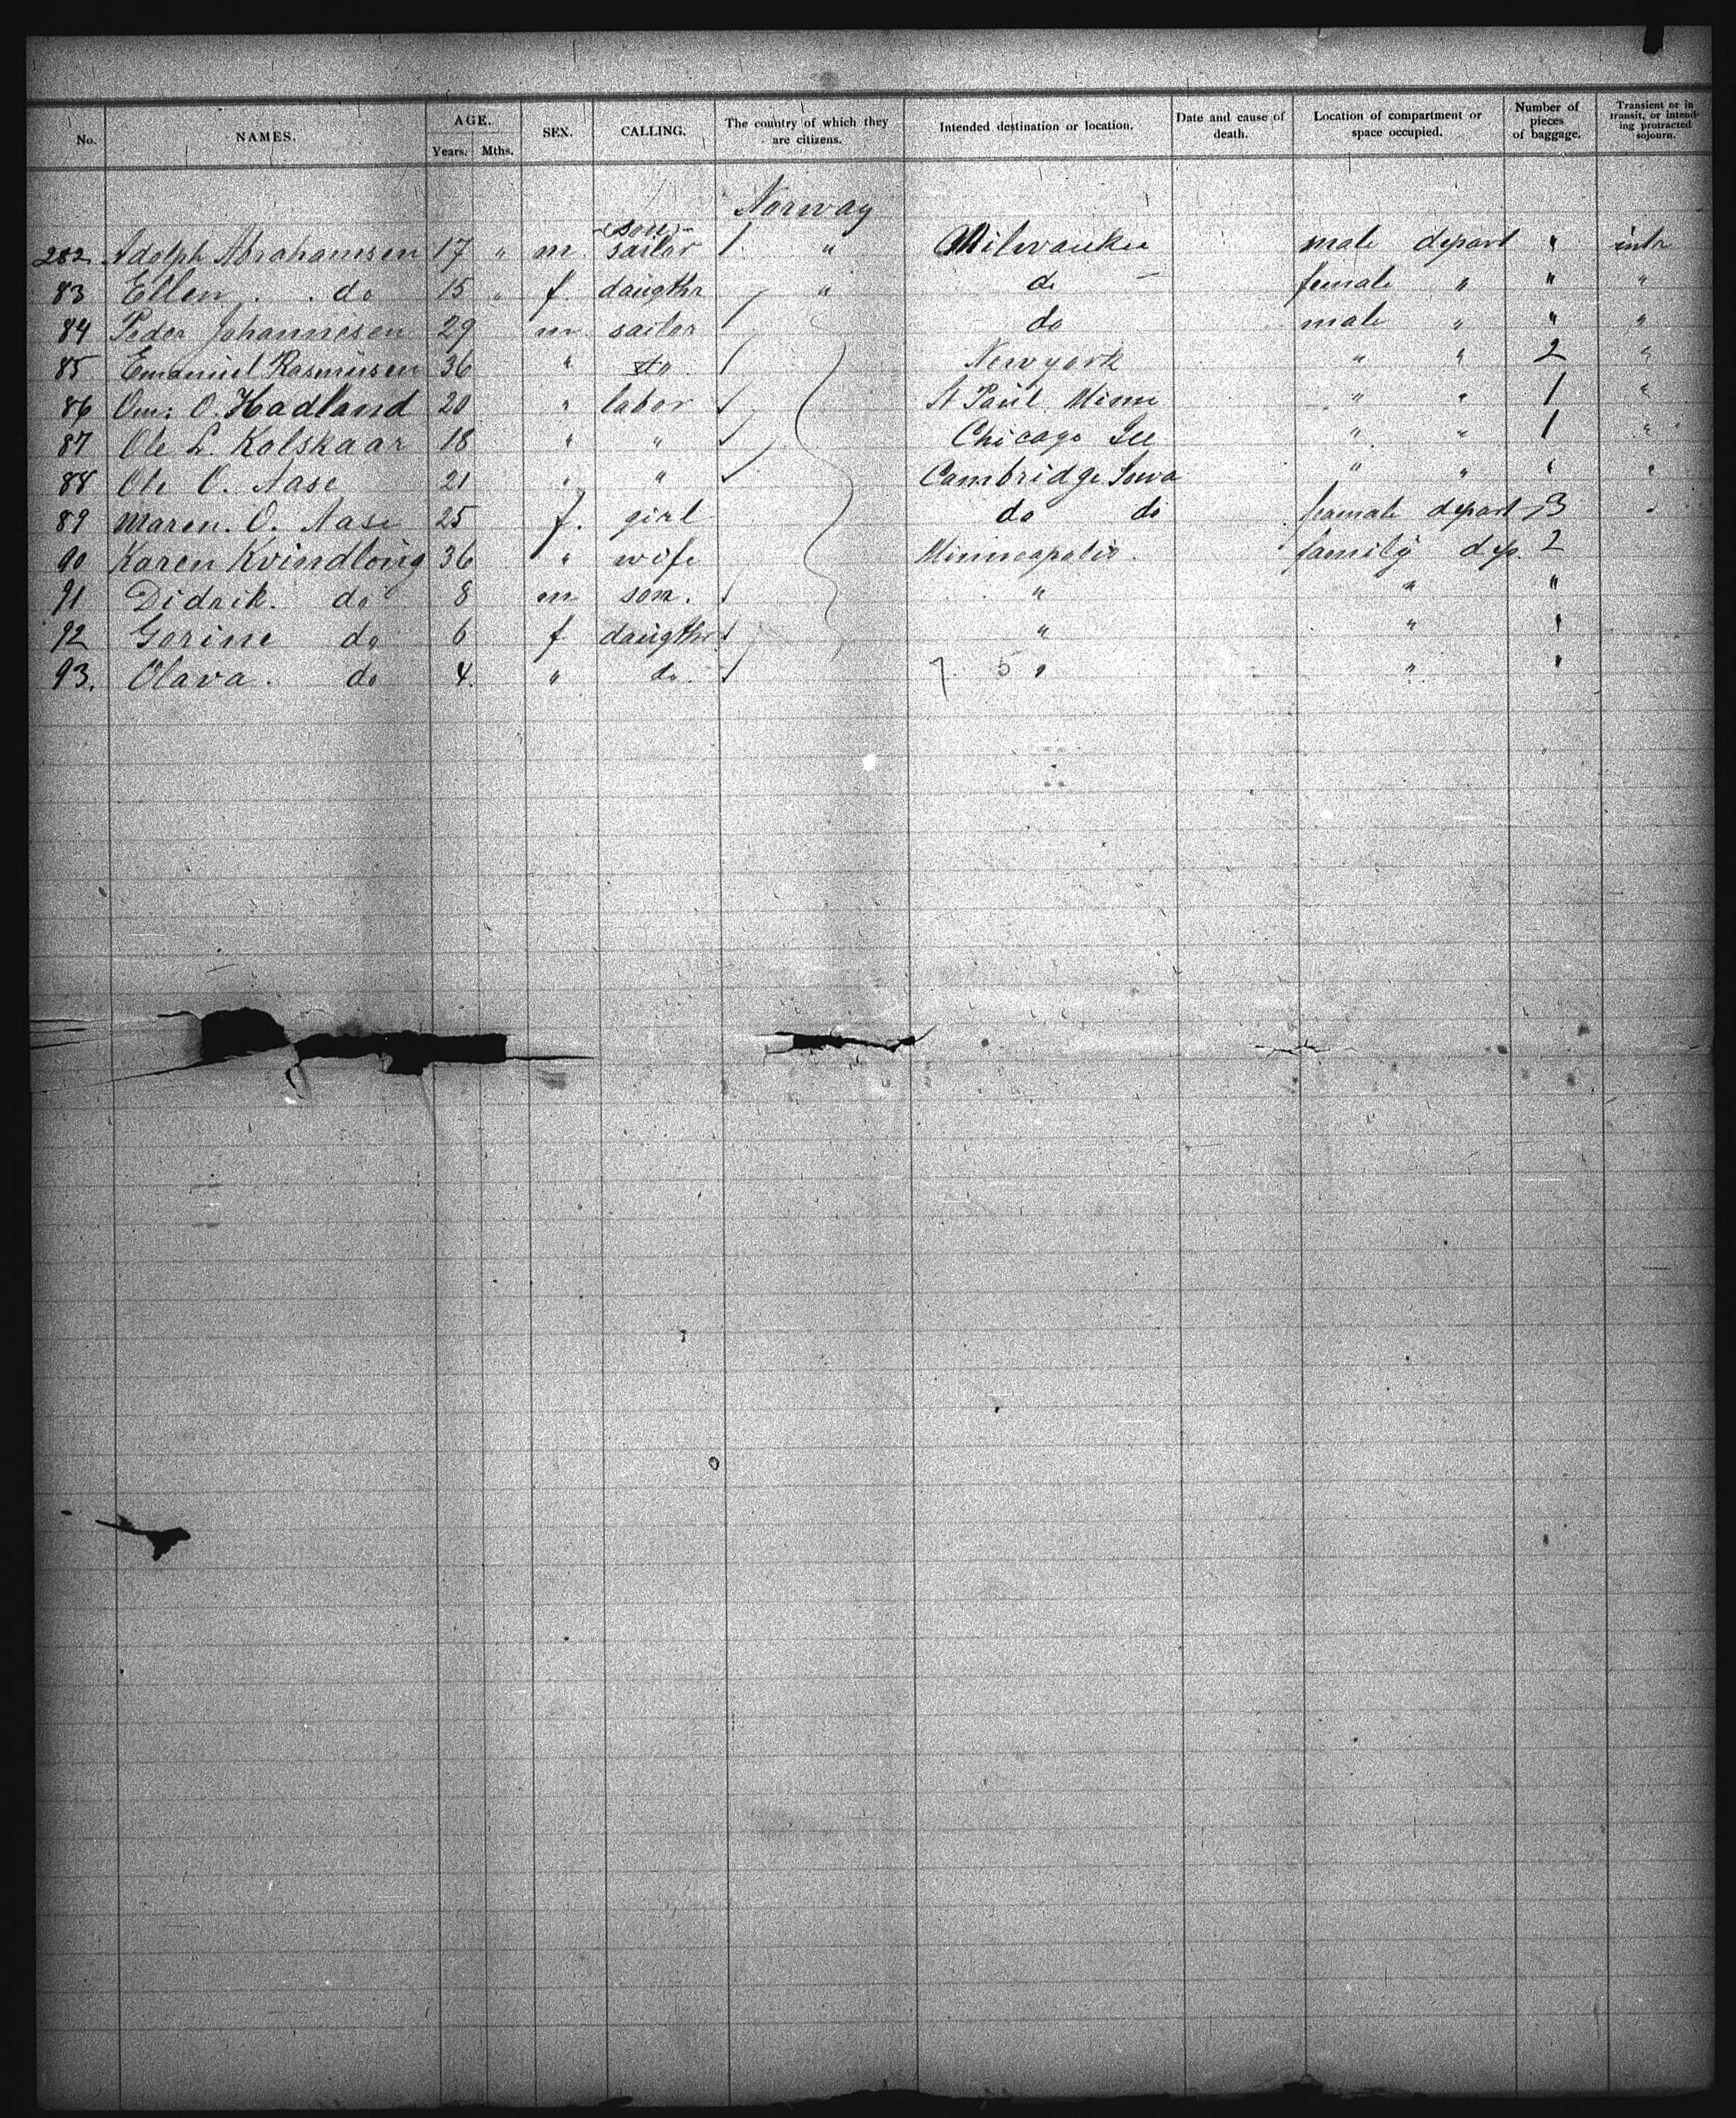 No. NAMES. AGE. Years. Mths. SEX. CALLING. The country of which they are citizens. Intended destination or location. Date and cause of death. Location of compartment or space occupied. Number of pieces of baggage. Transient or in transit, or intending protracted sojourn.
Norway
son
282. Adolph Abrahamsen 17 " m. sailor " Milwaukee male depart "
83 Ellen do 15 " f. daugthr " do female " " "
84 Peder Johannesen 29 m sailor do male " " "
85 Emanuel Rasmusen 36 " do Newyork " " 2 "
86 O. Hadland 20 " labor St Paul Minn " " 1 "
87 Ole L. Kolskaar 18 " " Chicago Ill " " 1 "
88 Ole O. Aase 21 " " Cambridge Iowa " " " "
89 Maren. O. Aase 25 f. girl do do female depart 3 "
90 Karen Kvindlong 36 " wife Minneapolis. family dep. 2
91 Didrik. do 8 m son. " " "
92 Gorine do 6 f daugthr " " "
93. Olava. do 4. " do. 7. 5 " " "